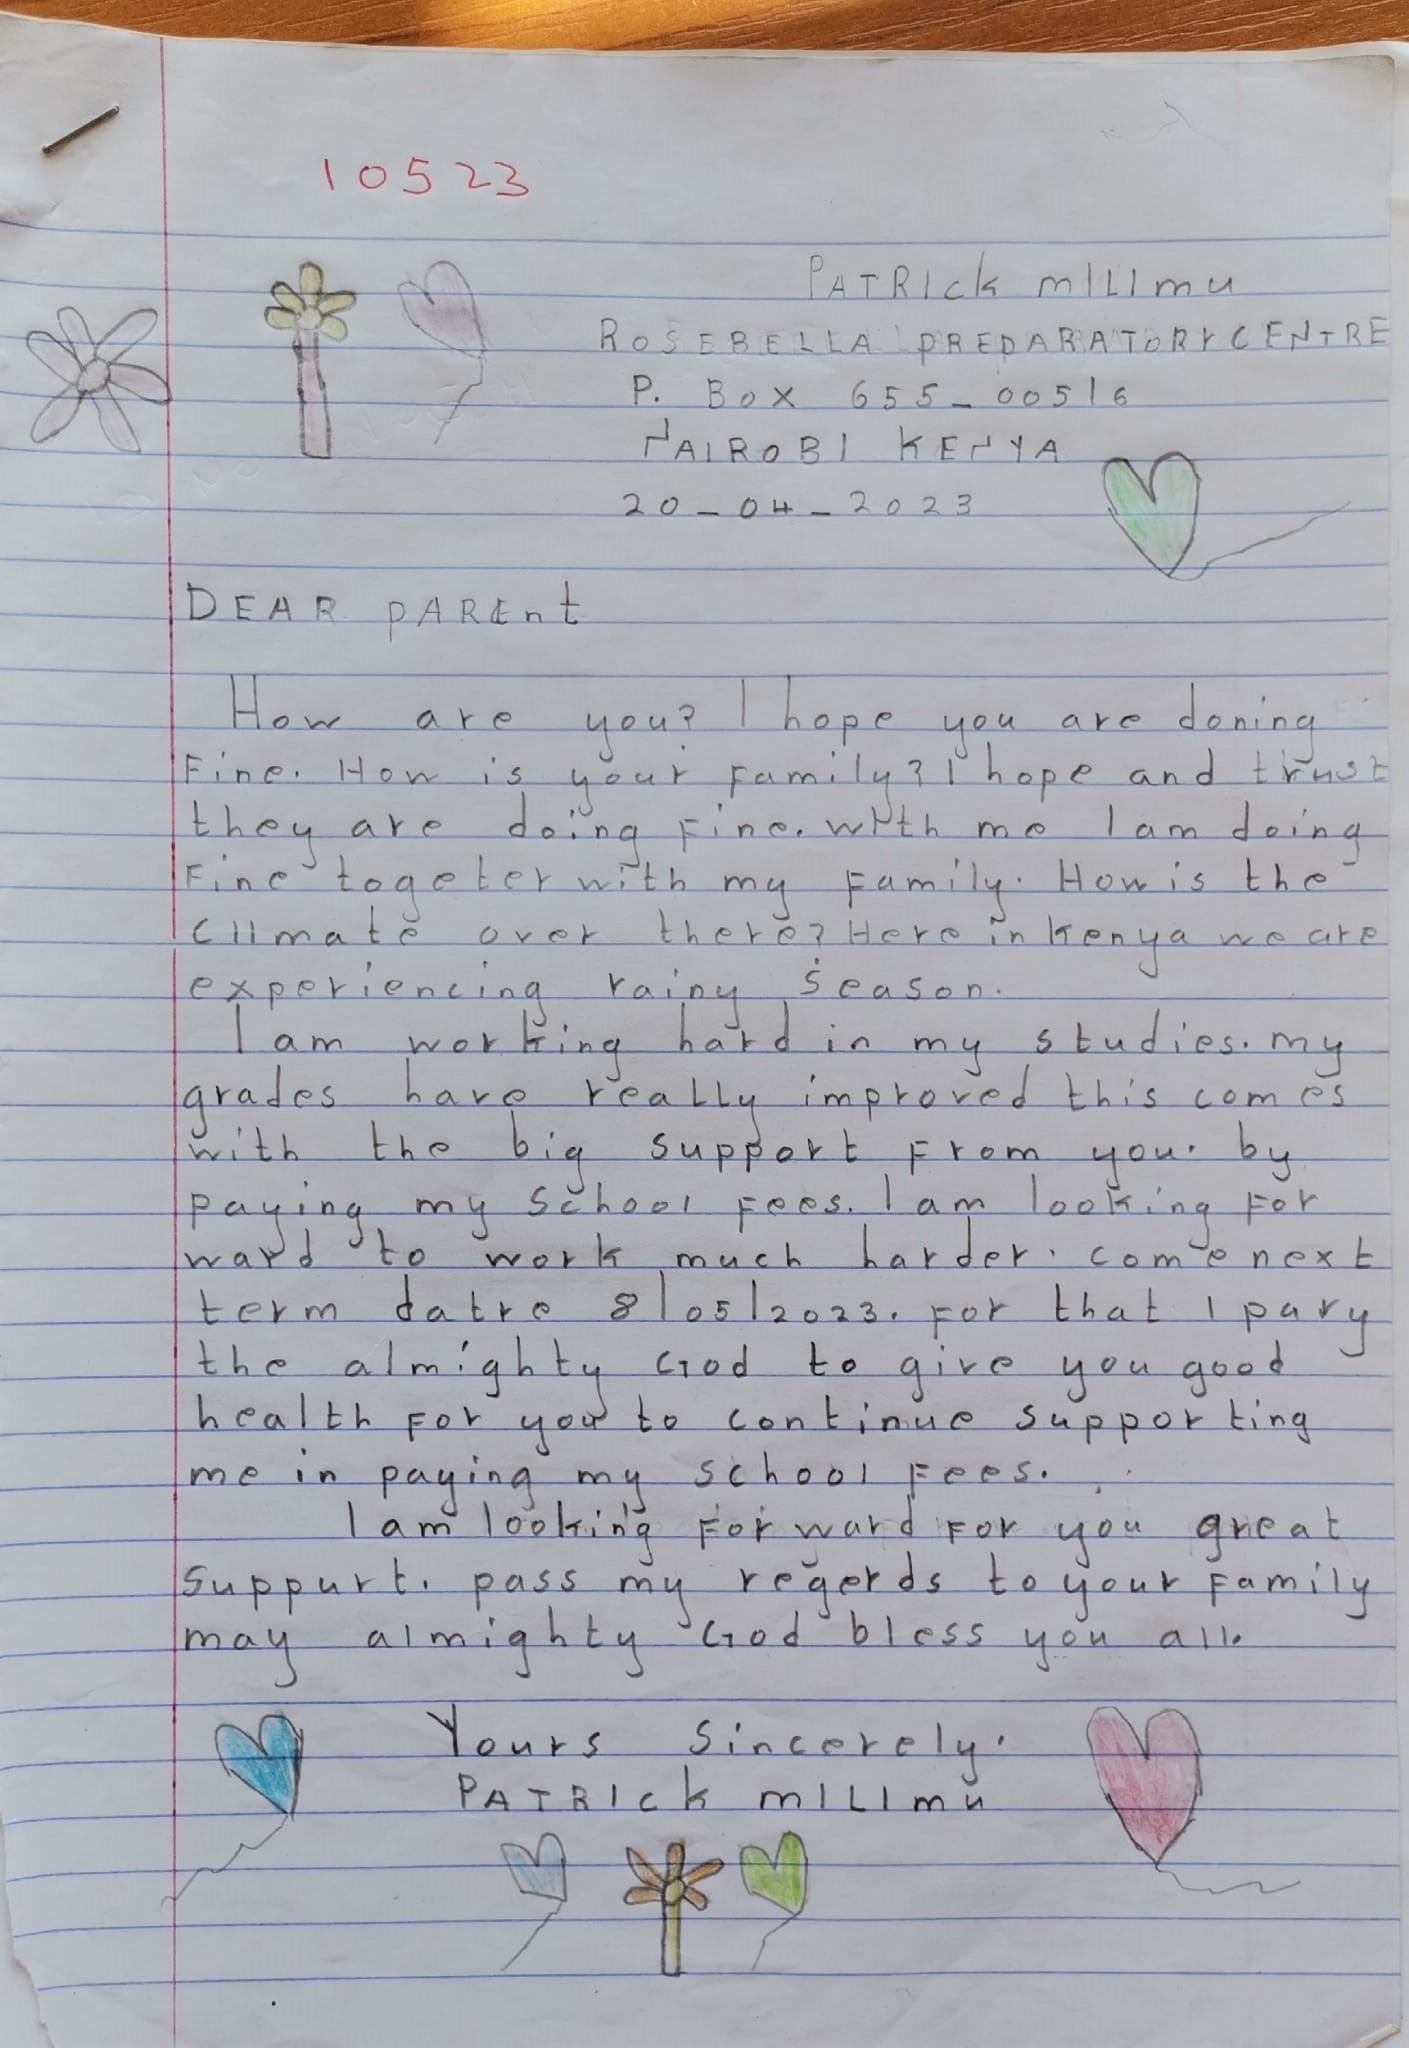 10523
PATRIck mILImu
ROSEBELLA PREPARATORY CENTRE
P. BOX 655_00516
NAIROBI KENYA
20_04_2023
DEAR PARENt
How are you? I hope you are doning
Fine. How is your Family? I hope and trust
they are doing Fine. With me I am doing
Fine togeter with my Family. How is the
climate over there? Here in Kenya we are
experiencing rainy season.
I am working hard in my studies. my
grades have really improved this comes
with the big support From you. by
paying my school Fees. I am looking For
ward to work much harder. come next
term datre 8/05/2023. For that I pary
the almighty God to give you good
health For you to continue supporting
me in paying my school Fees.
I am looking For ward For you great
suppurt. pass my regerds to your Family
may almighty God bless you all.
Yours Sincerely.
PATRIck mILImu